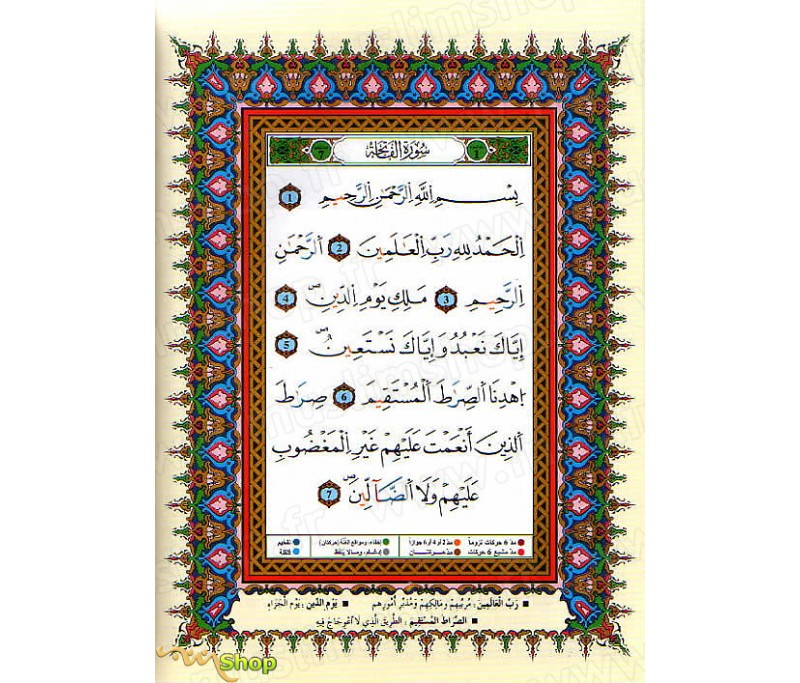 سُورَةُ الفَاتِحَة
بِسْمِ اللَّهِ الرَّحْمَٰنِ الرَّحِيمِ 1
الْحَمْدُ لِلَّهِ رَبِّ الْعَٰلَمِينَ 2 الرَّحْمَٰنِ
الرَّحِيمِ 3 مَلِكِ يَوْمِ الدِّينِ 4
إِيَّاكَ نَعْبُدُ وَإِيَّاكَ نَسْتَعِينُ 5
اهْدِنَا الصِّرَٰطَ الْمُسْتَقِيمَ 6 صِرَٰطَ
الَّذِينَ أَنْعَمْتَ عَلَيْهِمْ غَيْرِ الْمَغْضُوبِ
عَلَيْهِمْ وَلَا الضَّآلِّينَ 7
مدّ 6 حركات لزوماً مدّ 2 أو 4 أو 6 جوازاً إخفاء، ومواقع الغُنَّة (حركتان) تفخيم
مدّ مشبع 6 حركات مدّ حركتان إدغام، ومالا يُلفظ قلقلة
■ رَبِّ العَالَمِينَ : مُرَبِّيهِمْ وَمَالِكِهِمْ وَمُدَبِّرِ أُمُورِهِم ■ يَوْمِ الدِّينِ : يَوْمِ الجَزَاءِ
■ الصِّرَاطَ المُسْتَقِيمَ : الطَّرِيقَ الَّذِي لَا اعْوِجَاجَ فِيهِ
Shop